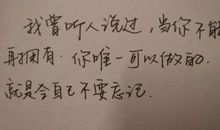 我曾听人说过，当你不能
再拥有．你唯一可以做的．
就是令自己不要忘记．